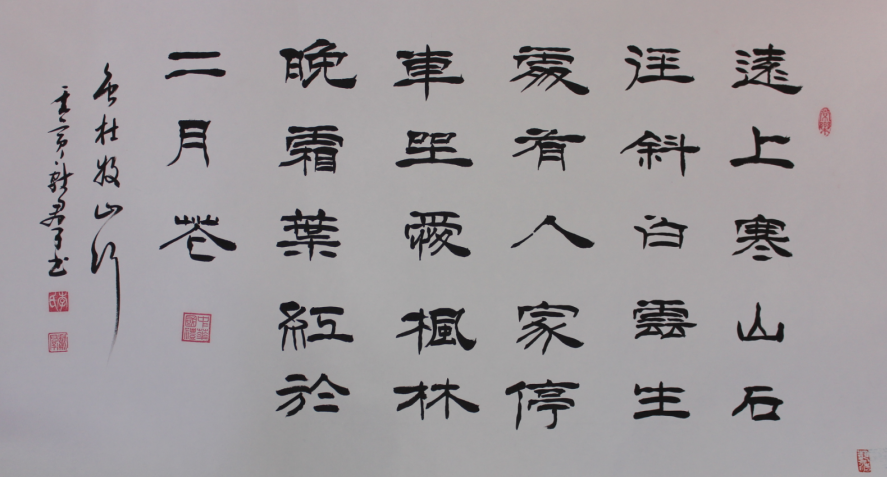 遠上寒山石
徑斜白雲生
處有人家停
車坐愛楓林
晚霜葉紅於
二月花
杜牧山行
壬寅 书